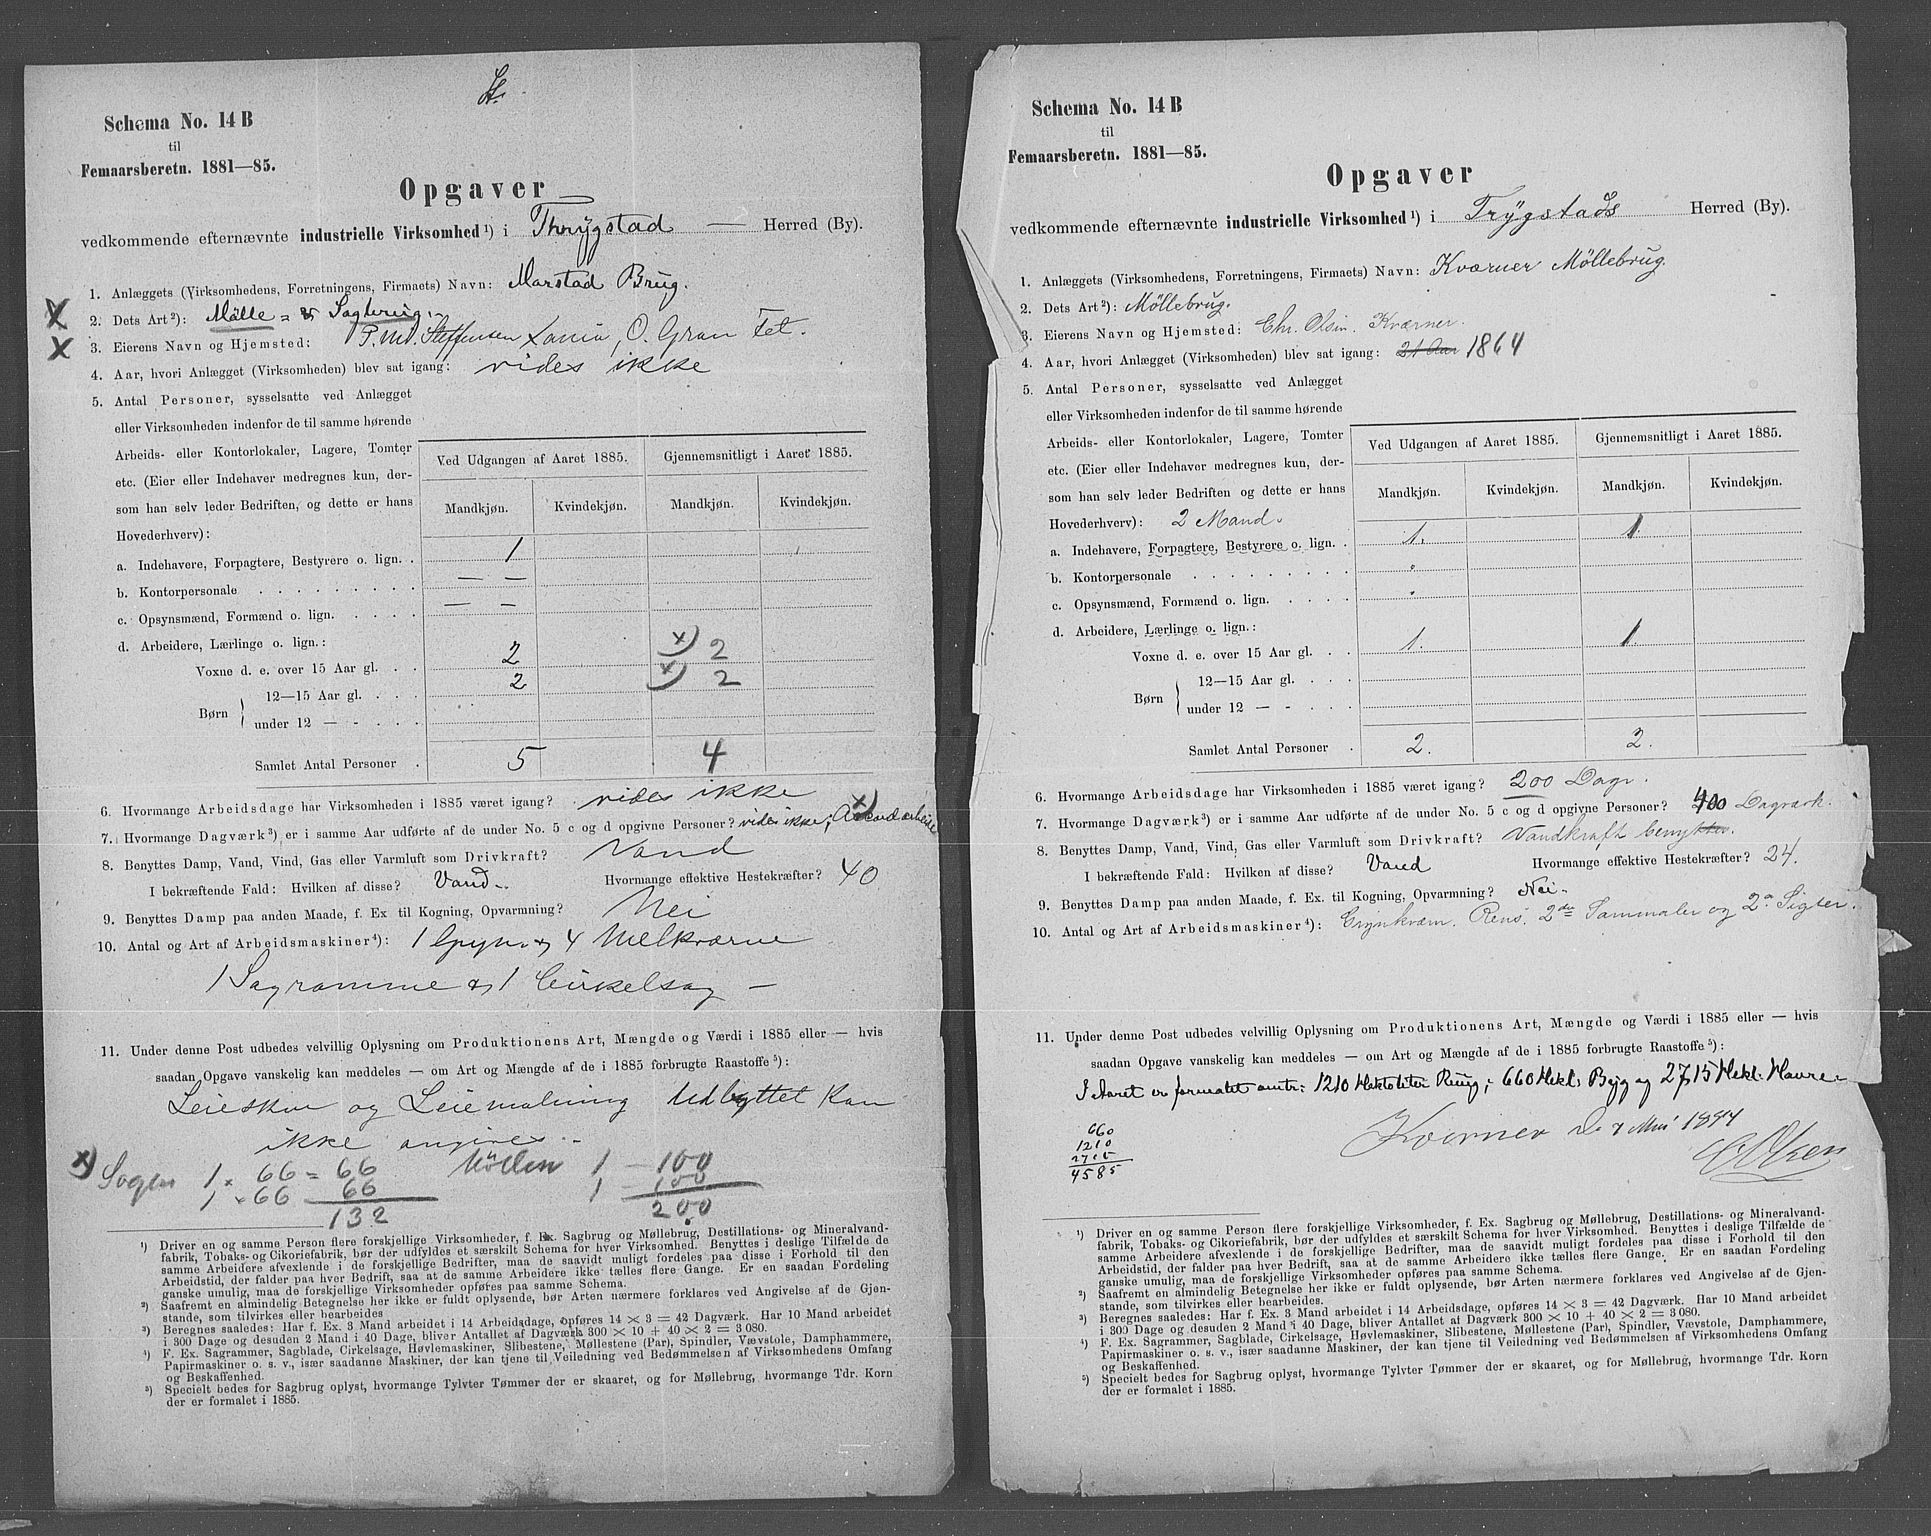 St.
Schema No. 14 B
til
Femaarsberetn. 1881—85.
Opgaver
vedkommende efternævnte industrielle Virksomhed ¹) i Thrygstad — Herred (By).
1. Anlæggets (Virksomhedens, Forretningens, Firmaets) Navn: Marstad Brug.
X 2. Dets Art ²): Mølle = & Sagbrug.
X 3. Eierens Navn og Hjemsted: P. M. Steffensen Xania, O. Gran Fet.
4. Aar, hvori Anlægget (Virksomheden) blev sat igang: vides ikke
5. Antal Personer, sysselsatte ved Anlægget
eller Virksomheden indenfor de til samme hørende
Arbeids- eller Kontorlokaler, Lagere, Tomter
etc. (Eier eller Indehaver medregnes kun, der-
som han selv leder Bedriften, og dette er hans
Hovederhverv):
Ved Udgangen af Aaret 1885. Gjennemsnitligt i Aaret 1885.
Mandkjøn. Kvindekjøn. Mandkjøn. Kvindekjøn.
a. Indehavere, Forpagtere, Bestyrere o. lign. . 1
b. Kontorpersonale . . . . . . . . . — —
c. Opsynsmænd, Formænd o. lign. . . . . — —
d. Arbeidere, Lærlinge o. lign.:
Voxne d. e. over 15 Aar gl. . . 2 x) 2
Børn 12—15 Aar gl. . . . 2 x) 2
under 12 — - . . .
Samlet Antal Personer . 5 4
6. Hvormange Arbeidsdage har Virksomheden i 1885 været igang? vides ikke
7. Hvormange Dagværk ³) er i samme Aar udførte af de under No. 5 c og d opgivne Personer? vides ikke, x) Akkordarbeide
8. Benyttes Damp, Vand, Vind, Gas eller Varmluft som Drivkraft? Vand
I bekræftende Fald: Hvilken af disse? Vand. Hvormange effektive Hestekræfter? 40
9. Benyttes Damp paa anden Maade, f. Ex til Kogning, Opvarmning? Nei
10. Antal og Art af Arbeidsmaskiner ⁴): 1 Gryn & 4 Melkværne
1 Sagramme & 1 Cirkelsag —
11. Under denne Post udbedes velvillig Oplysning om Produktionens Art, Mængde og Værdi i 1885 eller — hvis
saadan Opgave vanskelig kan meddeles — om Art og Mængde af de i 1885 forbrugte Raastoffe ⁵):
Leieskur og Leiemalning Udbyttet kan
ikke angives.
x) Sagen 1 × 66 = 66 Møllen 1 — 100
1 × 66 66 1 — 100
132 200
¹) Driver en og samme Person flere forskjellige Virksomheder, f. Ex. Sagbrug og Møllebrug, Destillations- og Mineralvand-
fabrik, Tobaks- og Cikoriefabrik, bør der udfyldes et særskilt Schema for hver Virksomhed. Benyttes i deslige Tilfælde de
samme Arbeidere afvexlende i de forskjellige Bedrifter, maa de saavidt muligt fordeles paa disse i Forhold til den
Arbeidstid, der falder paa hver Bedrift, saa at de samme Arbeidere ikke tælles flere Gange. Er en saadan Fordeling
ganske umulig, maa de forskjellige Virksomheder opføres paa samme Schema.
²) Saafremt en almindelig Betegnelse her ikke er fuldt oplysende, bør Arten nærmere forklares ved Angivelse af de Gjen-
stande, som tilvirkes eller bearbeides.
³) Beregnes saaledes: Har f. Ex. 3 Mand arbeidet i 14 Arbeidsdage, opføres 14 × 3 = 42 Dagværk. Har 10 Mand arbeidet
i 300 Dage og desuden 2 Mand i 40 Dage, bliver Antallet af Dagværk 300 × 10 + 40 × 2 = 3 080.
⁴) F. Ex. Sagrammer, Sagblade, Cirkelsage, Høvlemaskiner, Slibestene, Møllestene (Par), Spindler, Vævstole, Damphammere,
Papirmaskiner o. s. v., især saadanne Maskiner, der kan tjene til Veiledning ved Bedømmelsen af Virksomhedens Omfang
og Beskaffenhed.
⁵) Specielt bedes for Sagbrug oplyst, hvormange Tylvter Tømmer der er skaaret, og for Møllebrug, hvormange Tdr. Korn
der er formalet i 1885.
Schema No. 14 B
til
Femaarsberetn. 1881—85.
Opgaver
vedkommende efternævnte industrielle Virksomhed ¹) i Trygstads Herred (By).
1. Anlæggets (Virksomhedens, Forretningens, Firmaets) Navn: Kværner Møllebrug.
2. Dets Art ²): Møllebrug.
3. Eierens Navn og Hjemsted: Chr. Olsen. Kværner.
4. Aar, hvori Anlægget (Virksomheden) blev sat igang: 21 Aar 1864
5. Antal Personer, sysselsatte ved Anlægget
eller Virksomheden indenfor de til samme hørende
Arbeids- eller Kontorlokaler, Lagere, Tomter
etc. (Eier eller Indehaver medregnes kun, der-
som han selv leder Bedriften og dette er hans
Hovederhverv): 2 Mand.
Ved Udgangen af Aaret 1885. Gjennemsnitligt i Aaret 1885.
Mandkjøn. Kvindekjøn. Mandkjøn. Kvindekjøn.
a. Indehavere, Forpagtere, Bestyrere o. lign. . 1. 1
b. Kontorpersonale . . . . . . . . . "
c. Opsynsmænd, Formænd o. lign. . . . . "
d. Arbeidere, Lærlinge o. lign.:
Voxne d. e. over 15 Aar gl. . . 1. 1.
Børn 12—15 Aar gl. . . .
under 12 — - . . .
Samlet Antal Personer . 2. 2.
6. Hvormange Arbeidsdage har Virksomheden i 1885 været igang? 200 Dage.
7. Hvormange Dagværk ³) er i samme Aar udførte af de under No. 5 c og d opgivne Personer? 400 Dagværk.
8. Benyttes Damp, Vand, Vind, Gas eller Varmluft som Drivkraft? Vandkraft benyttes.
I bekræftende Fald: Hvilken af disse? Vand Hvormange effektive Hestekræfter? 24.
9. Benyttes Damp paa anden Maade, f. Ex. til Kogning, Opvarmning? Nei.
10. Antal og Art af Arbeidsmaskiner ⁴): Grynkværn. Rens. 2de Sammaler og 2a Sigter.
11. Under denne Post udbedes velvillig Oplysning om Produktionens Art, Mængde og Værdi i 1885 eller — hvis
saadan Opgave vanskelig kan meddeles — om Art og Mængde af de i 1885 forbrugte Raastoffe ⁵):
I Aaret er formalet omtr: 1210 Hektoliter Rug; 660 Hekl. Byg og 2715 Hekl. Havre
660
1210
2715
4585
Kværner
Olsen
¹) Driver en og samme Person flere forskjellige Virksomheder, f. Ex. Sagbrug og Møllebrug, Destillations- og Mineralvand-
fabrik, Tobaks- og Cikoriefabrik, bør der udfyldes et særskilt Schema for hver Virksomhed. Benyttes i deslige Tilfælde de
samme Arbeidere afvexlende i de forskjellige Bedrifter, maa de saavidt muligt fordeles paa disse i Forhold til den
Arbeidstid, der falder paa hver Bedrift, saa at de samme Arbeidere ikke tælles flere Gange. Er en saadan Fordeling
ganske umulig, maa de forskjellige Virksomheder opføres paa samme Schema.
²) Saafremt en almindelig Betegnelse her ikke er fuldt oplysende, bør Arten nærmere forklares ved Angivelse af de Gjen-
stande, som tilvirkes eller bearbeides.
³) Beregnes saaledes: Har f. Ex. 3 Mand arbeidet i 14 Arbeidsdage, opføres 14 × 3 = 42 Dagværk. Har 10 Mand arbeidet
i 300 Dage og desuden 2 Mand i 40 Dage, bliver Antallet af Dagværk 300 × 10 + 40 × 2 = 3 080.
⁴) F. Ex. Sagrammer, Sagblade, Cirkelsage, Høvlemaskiner, Slibestene, Møllestene (Par), Spindler, Vævstole, Damphammere,
Papirmaskiner o. s. v., især saadanne Maskiner, der kan tjene til Veiledning ved Bedømmelsen af Virksomhedens Omfang
og Beskaffenhed.
⁵) Specielt bedes for Sagbrug oplyst, hvormange Tylvter Tømmer der er skaaret, og for Møllebrug, hvormange Tdr. Korn
der er formalet i 1885.